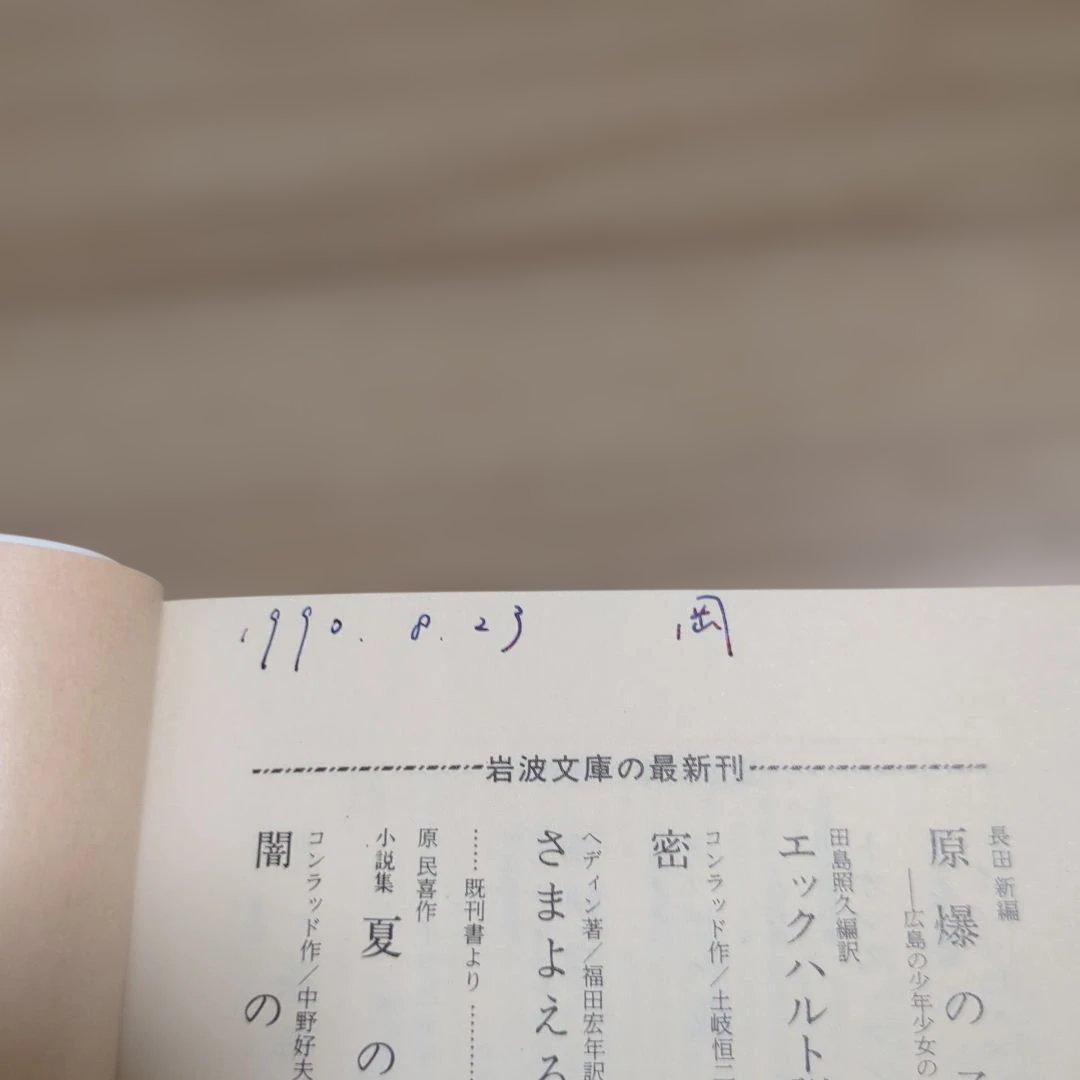 1990. 8. 23 岡
岩波文庫の最新刊
長田 新編
原爆の
──広島の少年少女の
田島照久編訳
エックハルト
コンラッド作／土岐恒二
密
ヘディン著／福田宏年訳
さまよえる
……既刊書より………
原 民喜作
小説集 夏の
コンラッド作／中野好夫
闇の